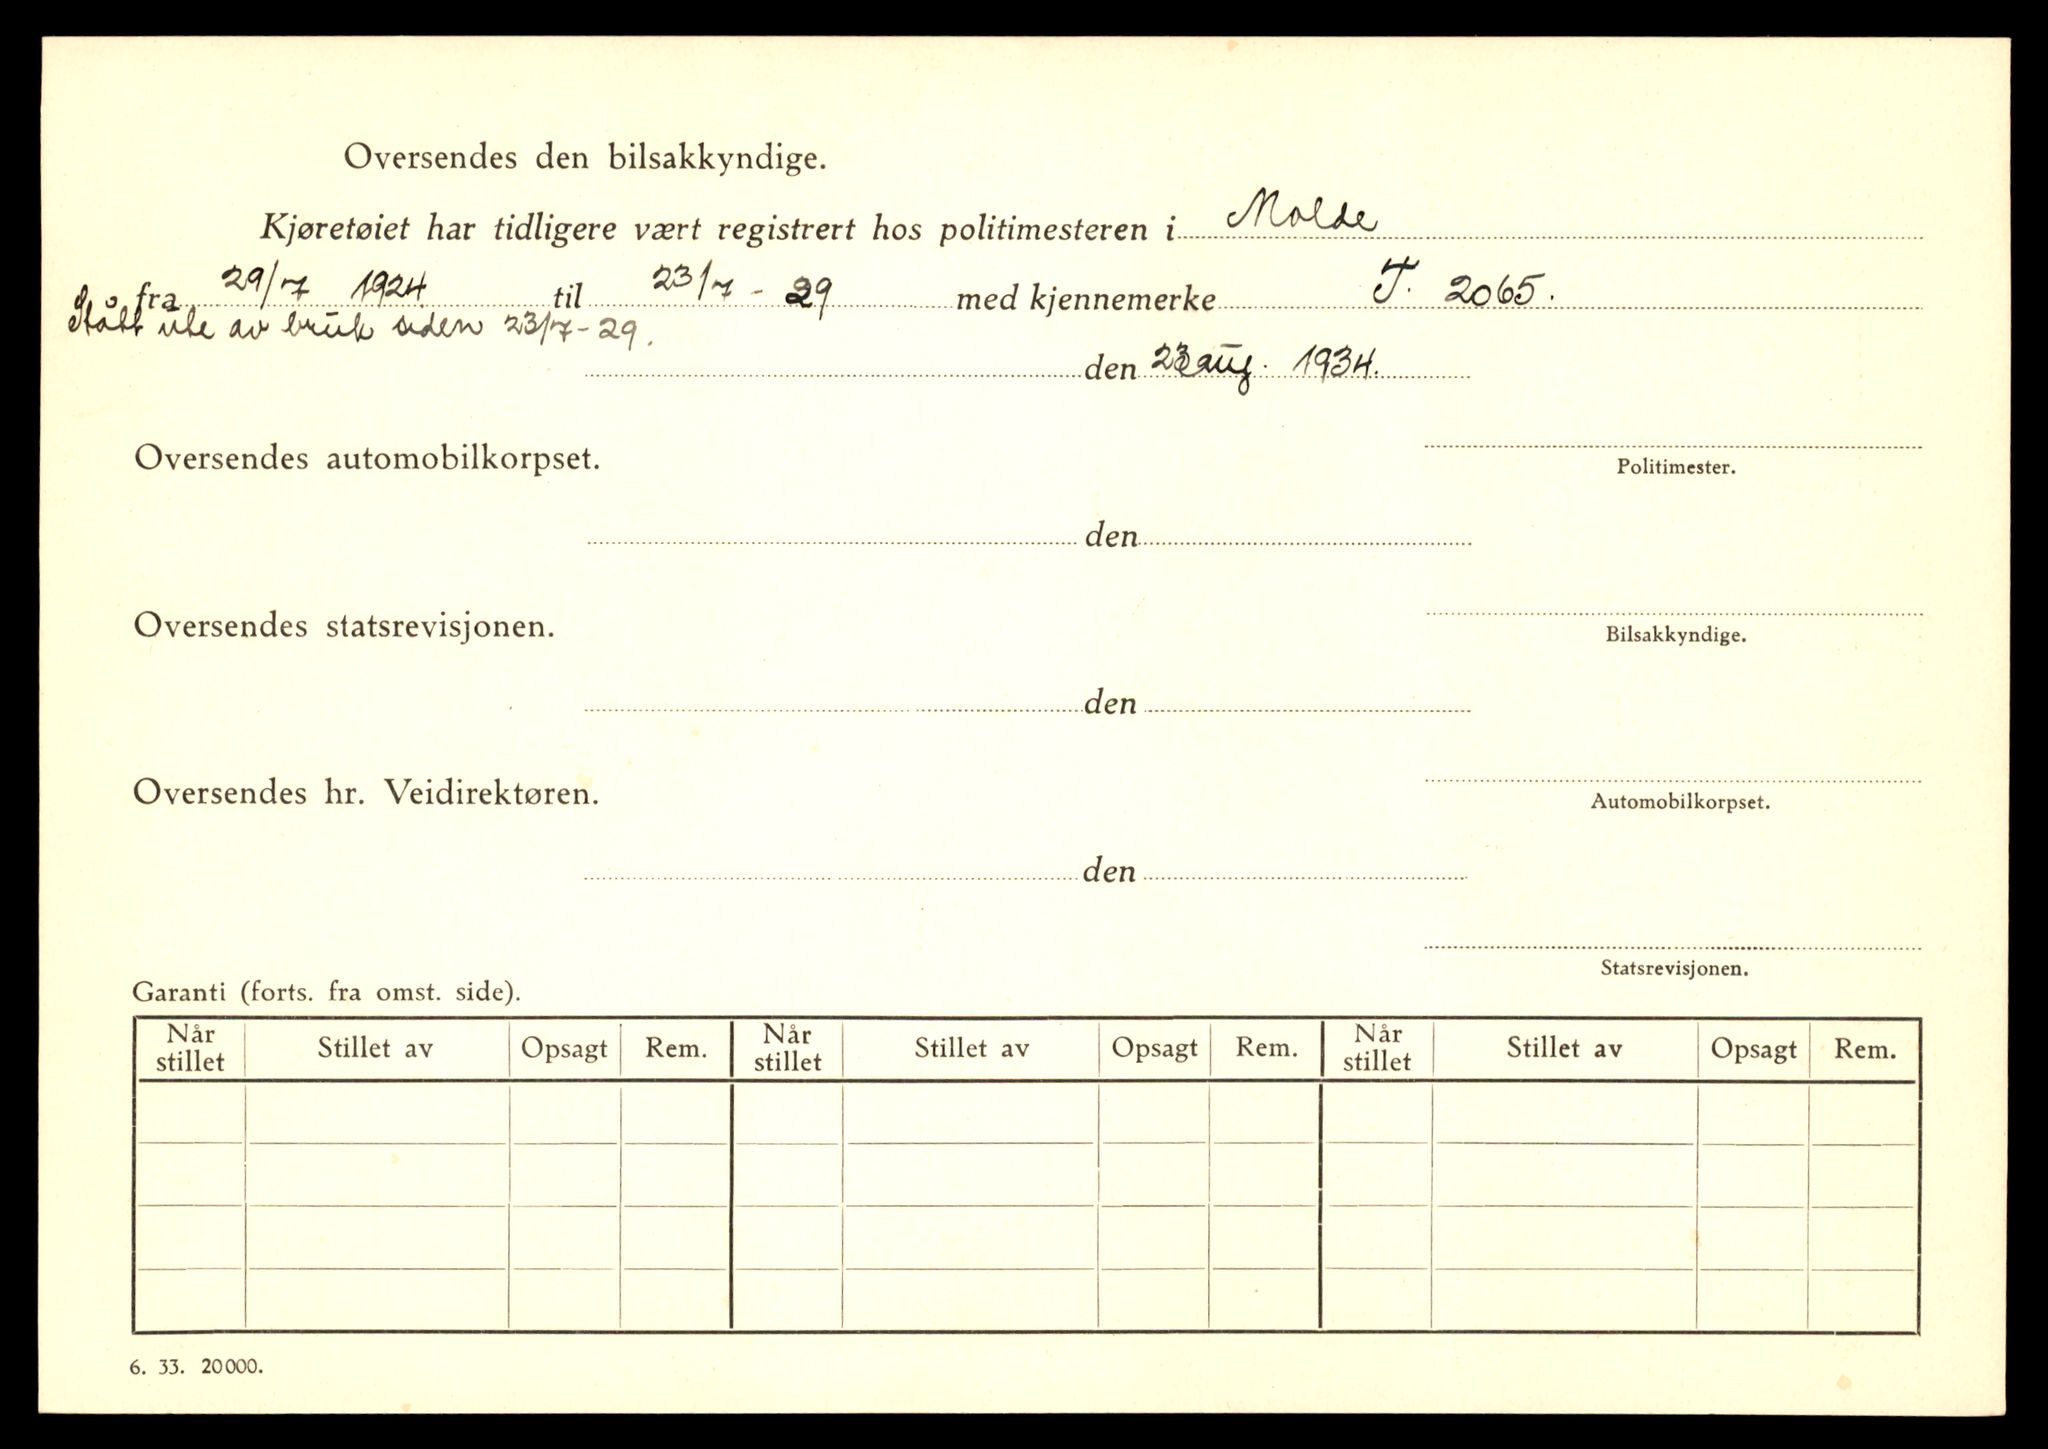 Oversendes den bilsakkyndige.
Kjøretøiet har tidligere vært registrert hos politimesteren i Molde
fra 29/7 1924 til 23/7 - 29 med kjennemerke T. 2065.
Stått ute av bruk siden 23/7-29.
den 23 aug. 1934.
Oversendes automobilkorpset.
Politimester.
den
Oversendes statsrevisjonen.
Bilsakkyndige.
den
Oversendes hr. Veidirektøren.
Automobilkorpset.
den
Statsrevisjonen.
Garanti (forts. fra omst. side).
Når stillet Stillet av Opsagt Rem. Når stillet Stillet av Opsagt Rem. Når stillet Stillet av Opsagt Rem.
6. 33. 20000.